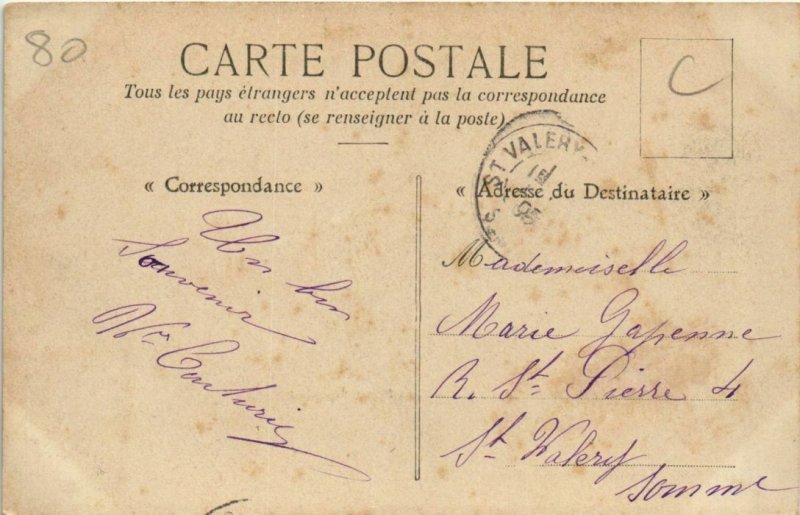 80
CARTE POSTALE
Tous les pays étrangers n'acceptent pas la correspondance
au recto (se renseigner à la poste).
C
ST VALERY
« Correspondance »
« Adresse du Destinataire »
Un bon
Souvenir
Mademoiselle
Marie Gapenne
R. St. Pierre 4
St Valéry
Somme